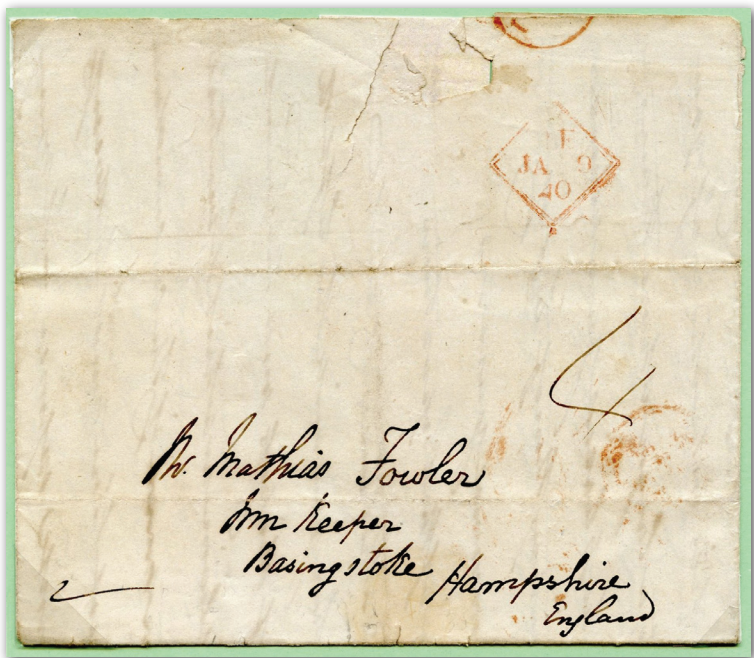 F
JA 9
40
4
Mr. Mathias Fowler
Inn Keeper
Basingstoke Hampshire
England